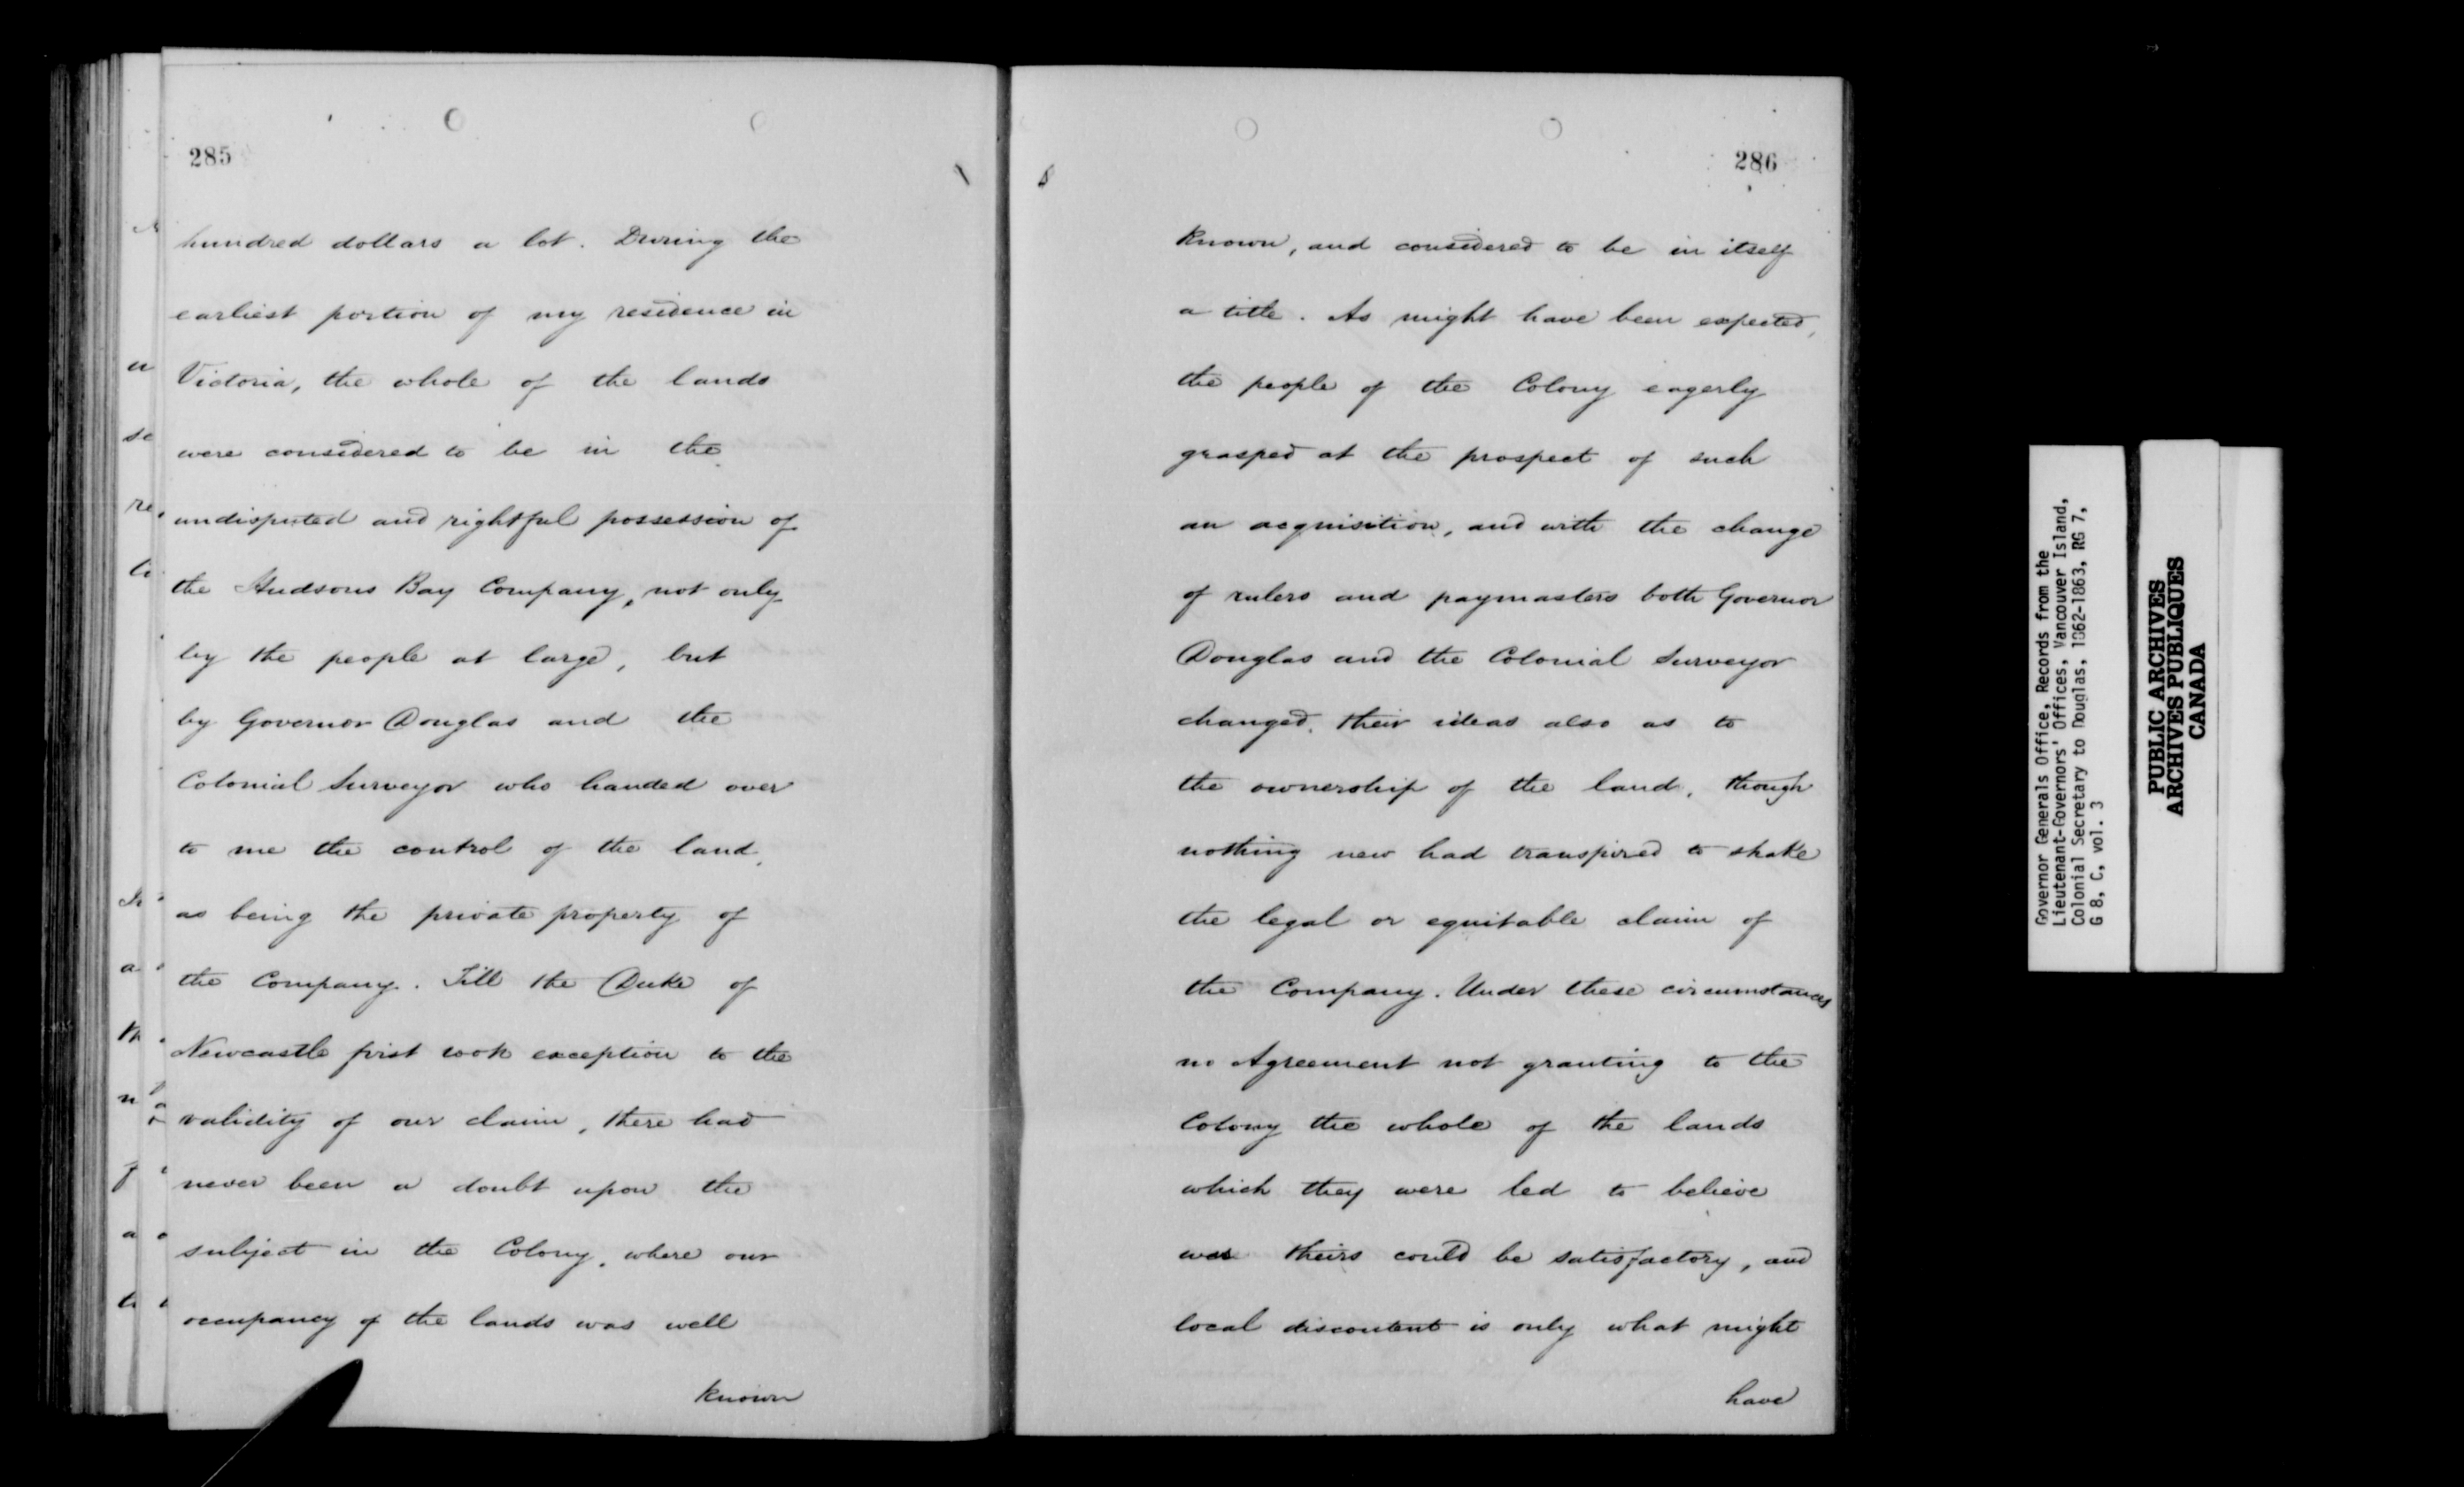 285
hundred dollars a lot. During the
earliest portion of my residence in
Victoria, the whole of the lands
were considered to be in the
undisputed and rightful possession of
the Hudsons Bay Company, not only
by the people at large, but
by Governor Douglas and the
Colonial Surveyor who handed over
to me the control of the land,
as being the private property of
the Company. Till the Duke of
Newcastle first took exception to the
validity of our claim, there had
never been a doubt upon the
subject in the Colony, where our
occupancy of the lands was well
known
286
known, and considered to be in itself
a title. As might have been expected,
the people of the Colony eagerly
grasped at the prospect of such
an acquisition, and with the change
of rulers and paymasters both Governor
Douglas and the Colonial Surveyor
changed their ideas also as to
the ownership of the land, though
nothing new had transpired to shake
the legal or equitable claim of
the Company. Under these circumstances
no Agreement not granting to the
Colony the whole of the lands
which they were led to believe
was theirs could be satisfactory, and
local discontent is only what might
have
Governor Generals Office, Records from the
Lieutenant-Governors' Offices, Vancouver Island,
Colonial Secretary to Douglas, 1862-1863, RG 7,
G 8, C, vol. 3
PUBLIC ARCHIVES
ARCHIVES PUBLIQUES
CANADA